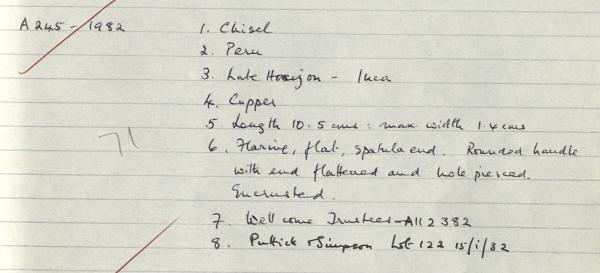 A245-1982
1. Chisel
2. Peru
3. Late Horizon - Inca
4. Copper
5. Length 10.5 cms : max. width 1.4 cms
6. Flaring, flat, spatula end. Rounded handle
with end flattened and hole pierced.
Encrusted.
71
7. Wellcome Trustees - A112382
8. Puttick & Simpson Lot 122 15/i/32